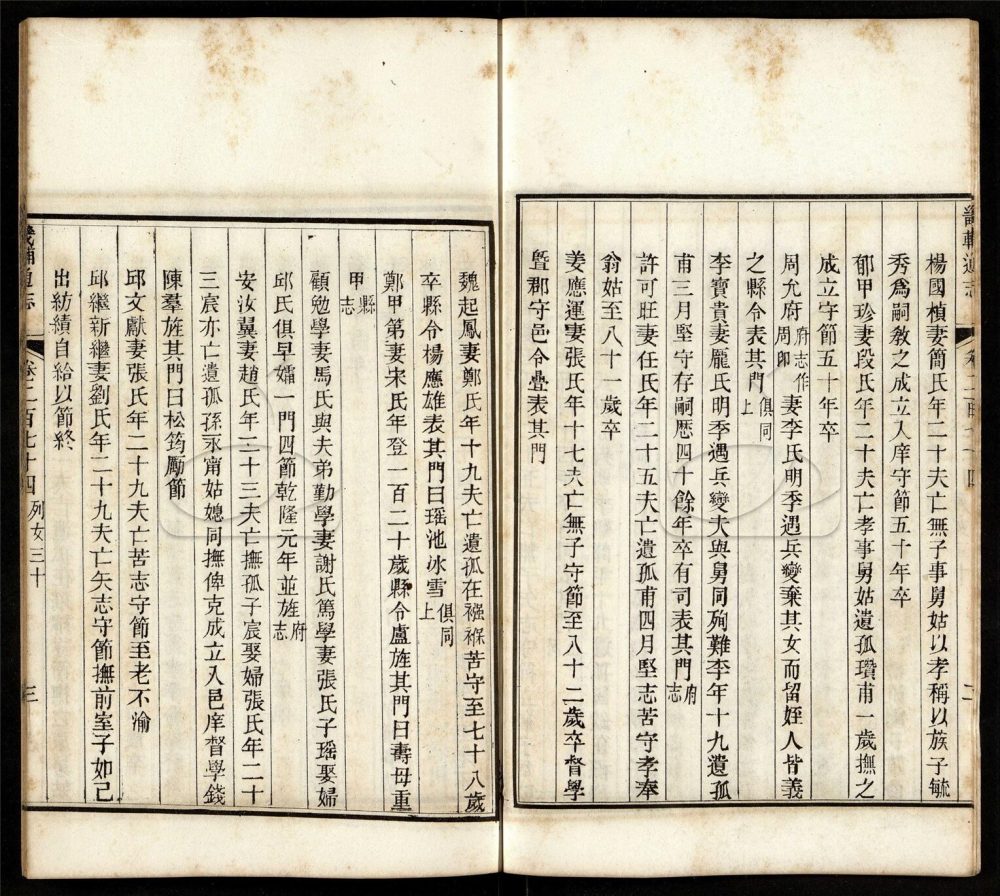 畿輔通志
卷二百七十四
二
楊國楨妻簡氏年二十夫亡無子事舅姑以孝稱以族子毓
秀爲嗣敎之成立入庠守節五十年卒
郁甲珍妻段氏年二十夫亡孝事舅姑遺孤瓚甫一歲撫之
成立守節五十年卒
周允府府志作周卽妻李氏明季遇兵變棄其女而留姪人皆義
之縣令表其門俱同上
李寶貴妻龐氏明季遇兵變夫與舅同殉難李年十九遺孤
甫三月堅守存嗣歷四十餘年卒有司表其門府志
許可旺妻任氏年二十五夫亡遺孤甫四月堅志苦守孝奉
翁姑至八十一歲卒
姜應運妻張氏年十七夫亡無子守節至八十二歲卒督學
曁郡守邑令疊表其門
魏起鳳妻鄭氏年十九夫亡遺孤在襁褓苦守至七十八歲
卒縣令楊應雄表其門曰瑶池冰雪俱同上
鄭甲第妻宋氏年登一百二十歲縣令盧旌其門曰壽母重
甲縣志
顧勉學妻馬氏與夫弟勤學妻謝氏篤學妻張氏子瑶娶婦
邱氏俱早孀一門四節乾隆元年並旌府志
安汝翼妻趙氏年二十三夫亡撫孤子宸娶婦張氏年二十
三宸亦亡遺孤孫永甯姑媳同撫俾克成立入邑庠督學錢
陳羣旌其門曰松筠勵節
邱文獻妻張氏年二十九夫亡苦志守節至老不渝
邱繼新繼妻劉氏年二十九夫亡矢志守節撫前室子如己
出紡績自給以節終
畿輔通志
卷二百七十四
列女三十
三